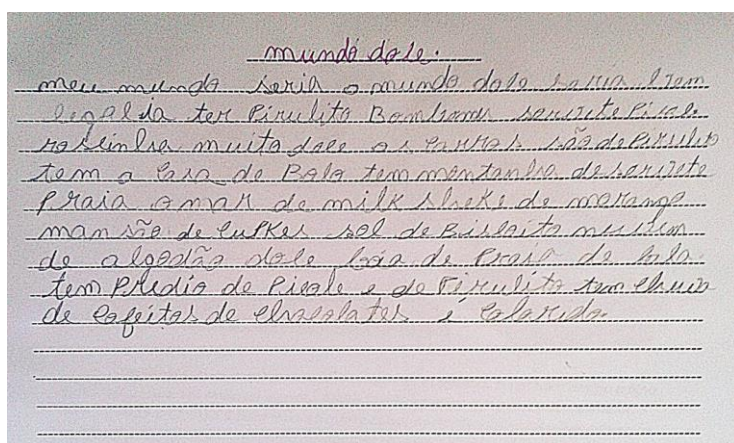 mundo dose.
meu mundo seria o mundo dose seria bem
legal ia ter Pirulito Bombom sorvete Picole
muito dose as são de Pirulito
tem a casa de Bolo tem montanha de sorvete
Praia o mar de milk sheke de morango
man são de cupkes sol de Biscoito nuvem
de algodão dose de Praia de bala
tem Predio de Picole e de Pirulito tem chuva
de cofeitos de chocolates e colorido.